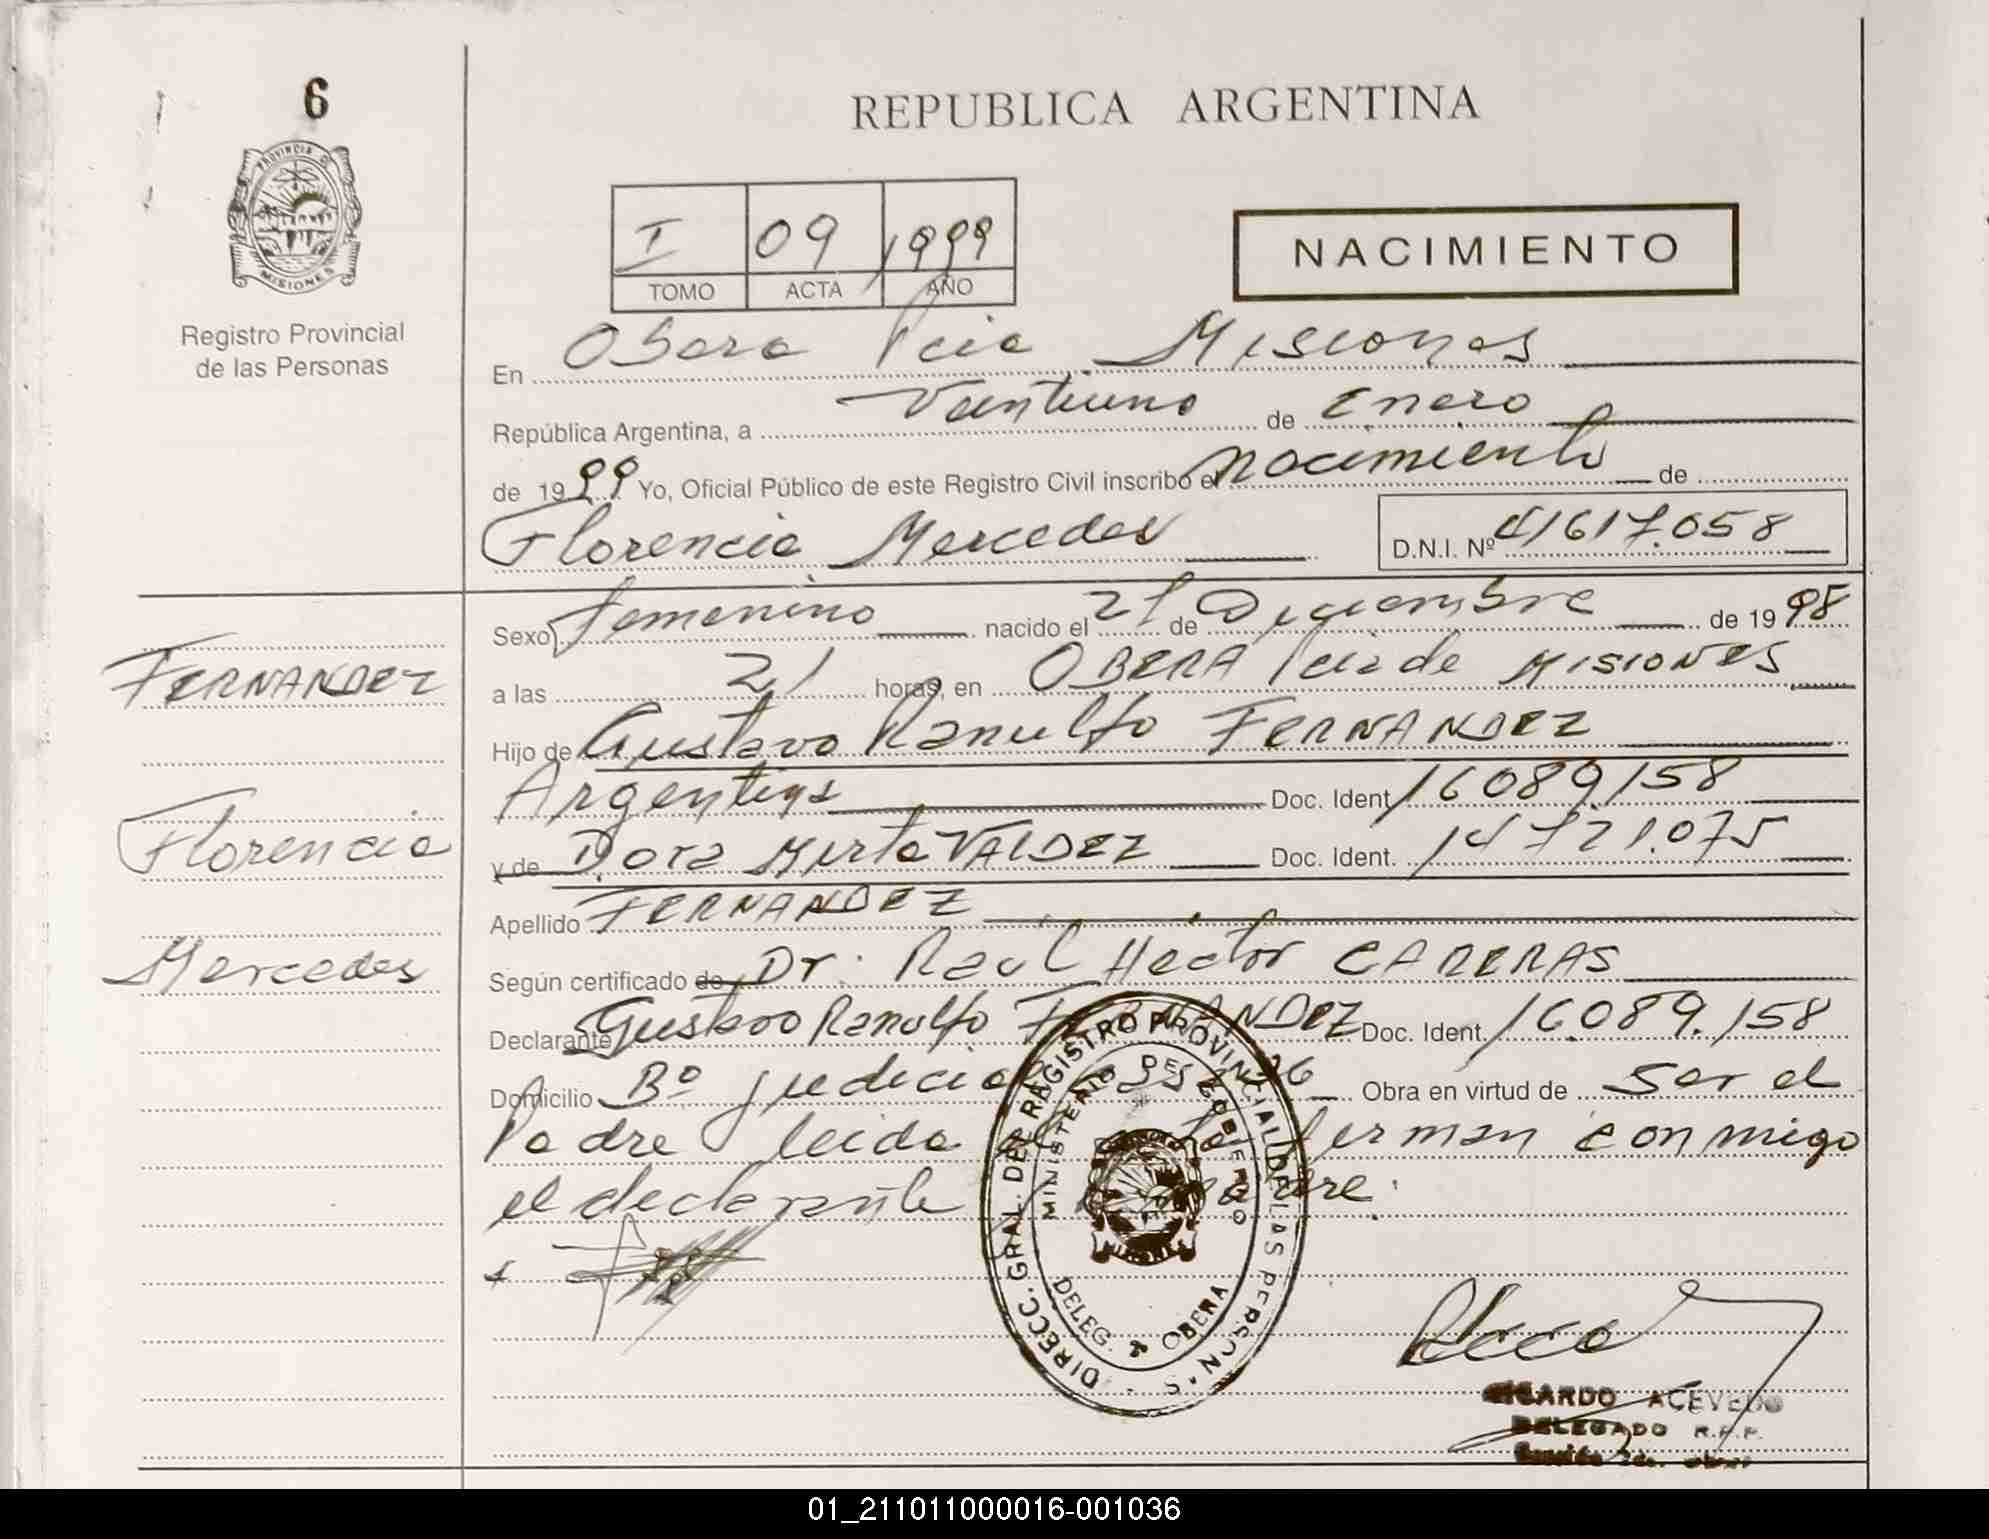 6
REPUBLICA ARGENTINA
PROVINCIA D
MISIONES
Registro Provincial
de las Personas
I 09 1999
TOMO ACTA AÑO
NACIMIENTO
En Obera Pcia Misiones
República Argentina, a Veintiuno de Enero
de 1999 Yo, Oficial Público de este Registro Civil inscribo el Nacimiento de
Florencia Mercedes D.N.I. Nº 41617.058
Sexo Femenino nacido el 21 de Diciembre de 1998
FERNANDEZ
a las 21 horas, en OBERA Pcia de MISIONES
Hijo de Gustavo Ranulfo FERNANDEZ
Argentina Doc. Ident. 16089158
Florencia
y de Dora Mirta VALDEZ Doc. Ident. 14721.075
Apellido FERNANDEZ
Mercedes
Según certificado de Dr. Raúl Hector CARERAS
Declarante Gustavo Ranulfo FERNANDEZ Doc. Ident. 16089.158
Domicilio Bº judicial 26 Obra en virtud de ser el
Padre leida firman conmigo
el declarante
DIRECC. GRAL. DEL REGISTRO PROVINCIAL DE LAS PERSON S
MINISTERIO DE GOBIERNO
DELEG. OBERA
RICARDO ACEVEDO
DELEGADO R.P.P.
01_211011000016-001036